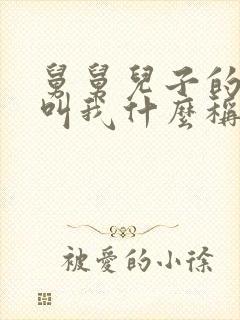 舅舅兒子的
叫我什麼稱
被愛的小徐